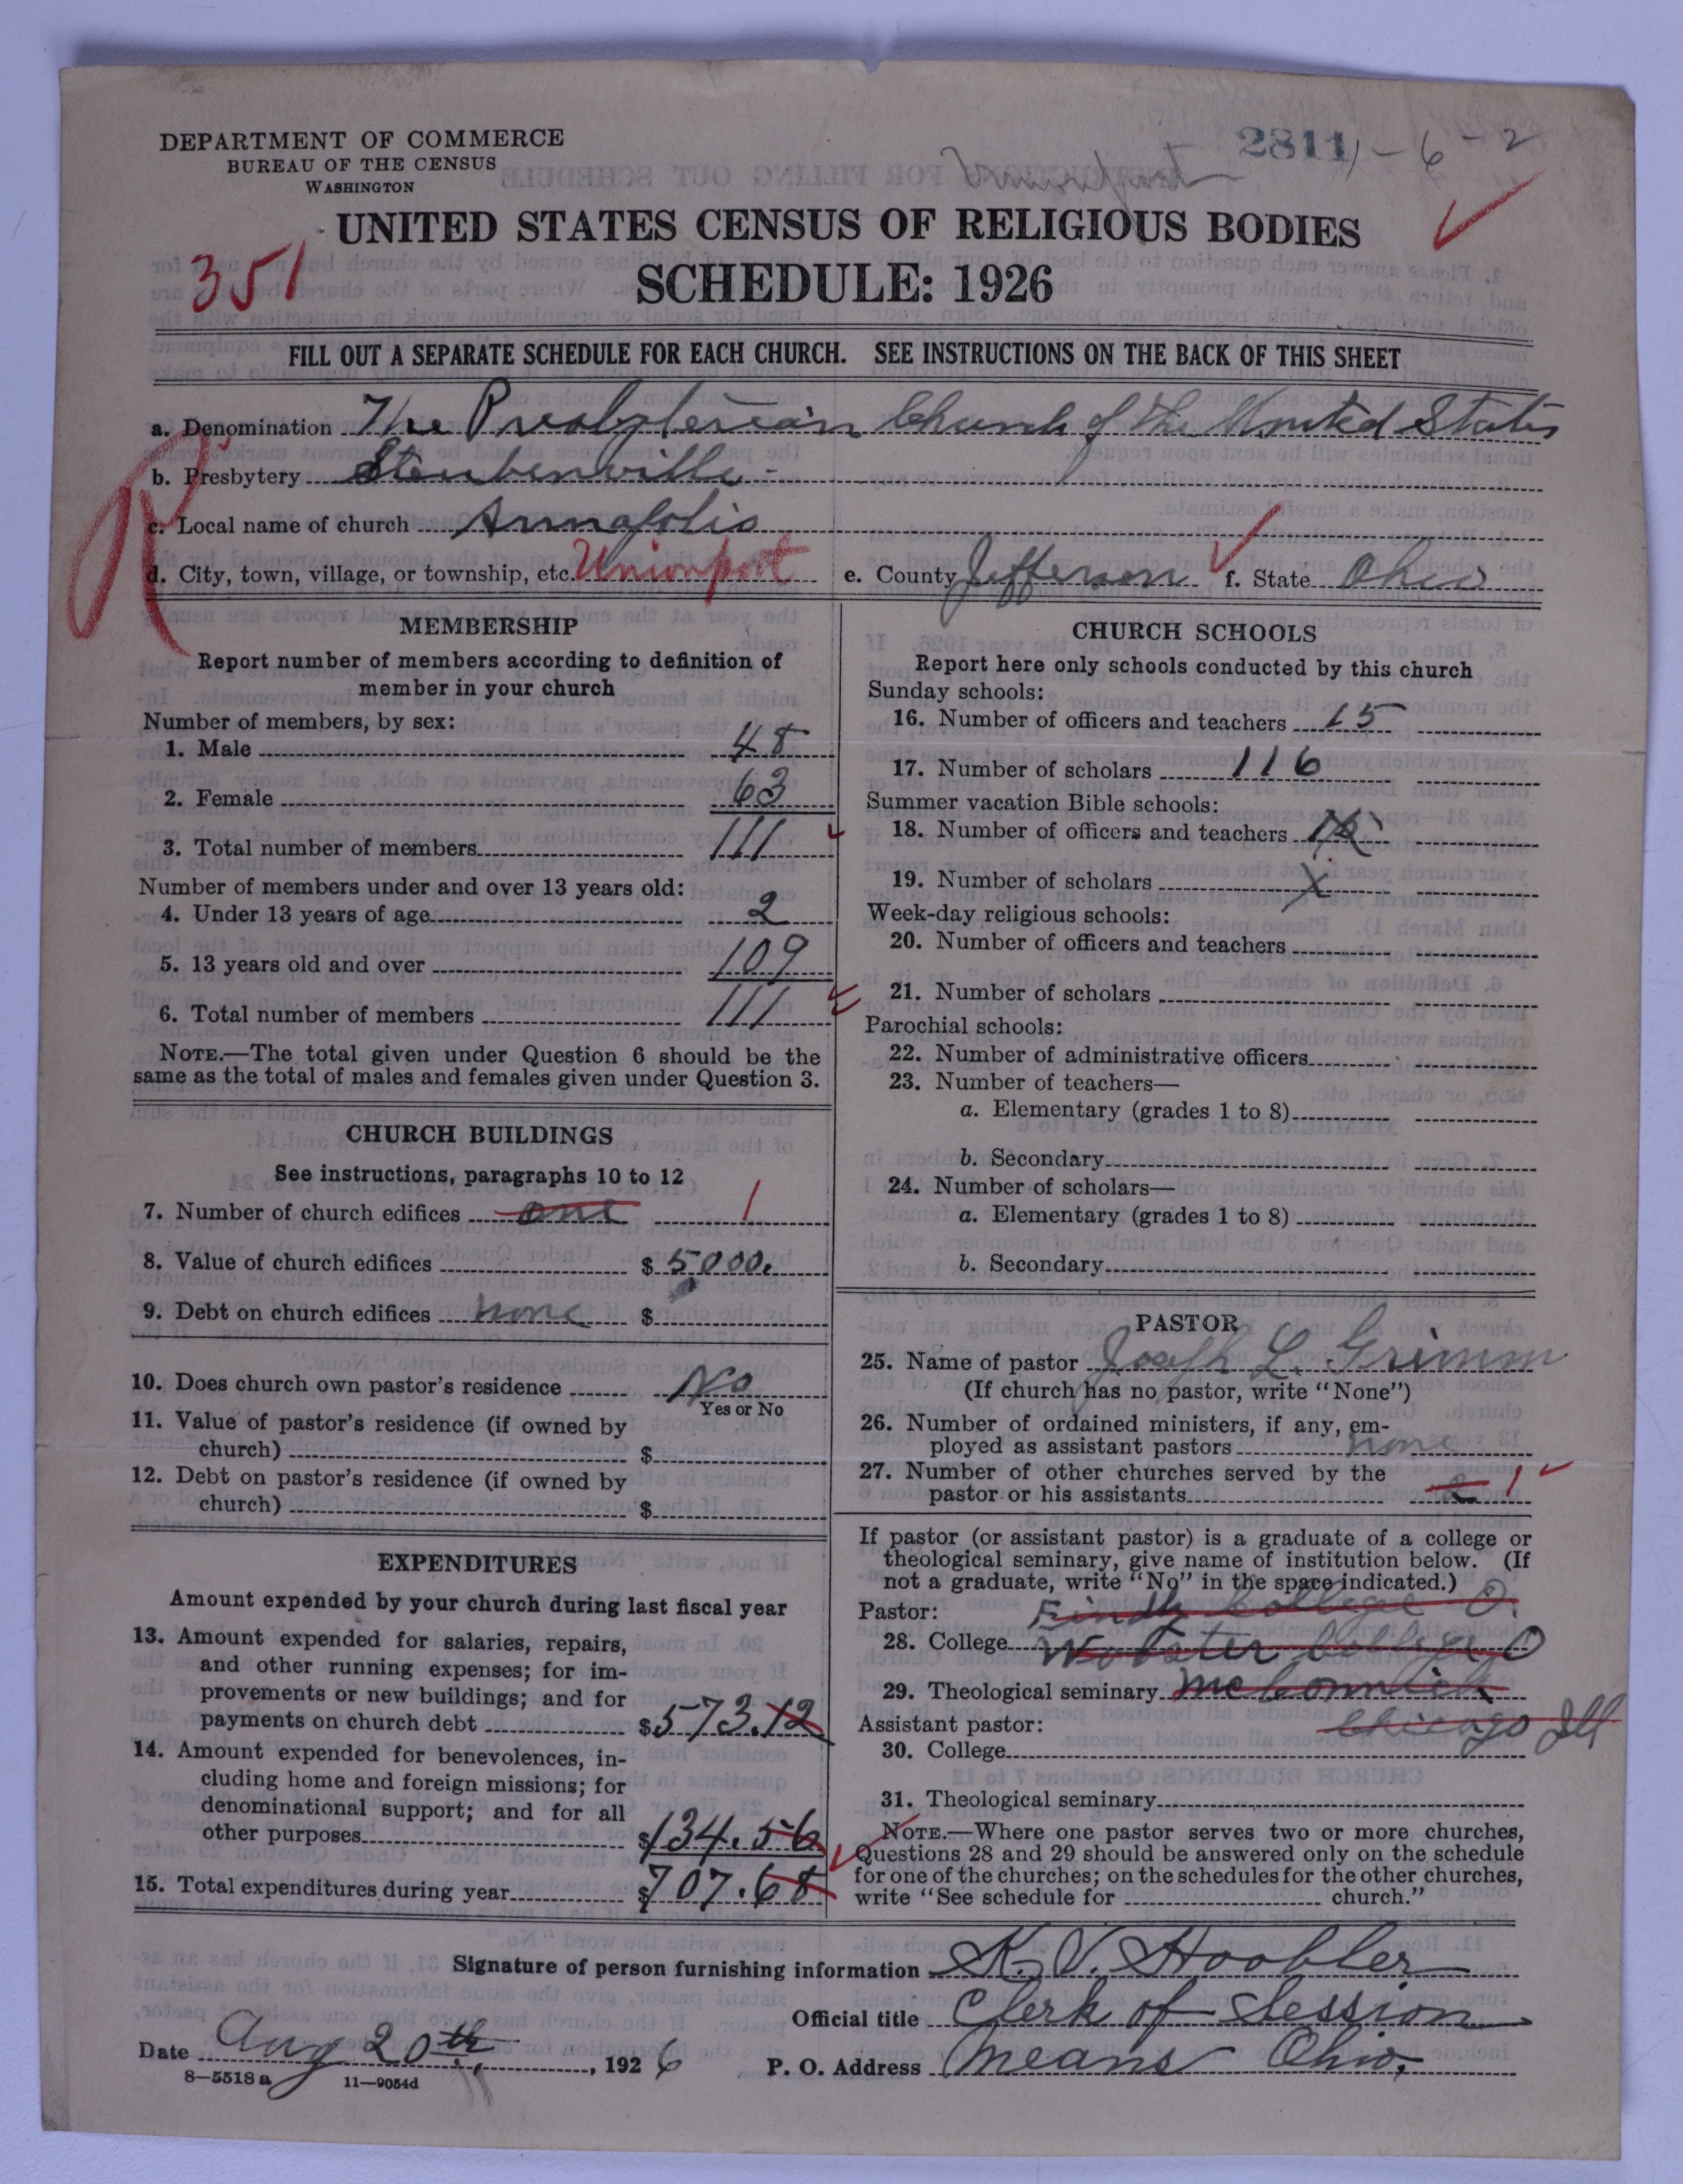 DEPARTMENT OF COMMERCE
BUREAU OF THE CENSUS
WASHINGTON
2811 1-6-2
UNITED STATES CENSUS OF RELIGIOUS BODIES
351
SCHEDULE: 1926
FILL OUT A SEPARATE SCHEDULE FOR EACH CHURCH. SEE INSTRUCTIONS ON THE BACK OF THIS SHEET
a. Denomination The Presbyterian Church of the United States
b. Presbytery Steubenville
c. Local name of church Annapolis
d. City, town, village, or township, etc. Unionport e. County Jefferson f. State Ohio
R
MEMBERSHIP
Report number of members according to definition of
member in your church
Number of members, by sex:
1. Male 48
2. Female 63
3. Total number of members 111
Number of members under and over 13 years old:
4. Under 13 years of age 2
5. 13 years old and over 109
6. Total number of members 111
NOTE.—The total given under Question 6 should be the
same as the total of males and females given under Question 3.
CHURCH BUILDINGS
See instructions, paragraphs 10 to 12
7. Number of church edifices one 1
8. Value of church edifices $ 5000.
9. Debt on church edifices none $
10. Does church own pastor's residence No
Yes or No
11. Value of pastor's residence (if owned by
church) $
12. Debt on pastor's residence (if owned by
church) $
EXPENDITURES
Amount expended by your church during last fiscal year
13. Amount expended for salaries, repairs,
and other running expenses; for im-
provements or new buildings; and for
payments on church debt $ 573.12
14. Amount expended for benevolences, in-
cluding home and foreign missions; for
denominational support; and for all
other purposes $ 134.56
15. Total expenditures during year $ 707.68
CHURCH SCHOOLS
Report here only schools conducted by this church
Sunday schools:
16. Number of officers and teachers 15
17. Number of scholars 116
Summer vacation Bible schools:
18. Number of officers and teachers
19. Number of scholars X
Week-day religious schools:
20. Number of officers and teachers
21. Number of scholars
Parochial schools:
22. Number of administrative officers
23. Number of teachers—
a. Elementary (grades 1 to 8)
b. Secondary
24. Number of scholars—
a. Elementary (grades 1 to 8)
b. Secondary
PASTOR
25. Name of pastor Joseph L. Grimm
(If church has no pastor, write "None")
26. Number of ordained ministers, if any, em-
ployed as assistant pastors none
27. Number of other churches served by the
pastor or his assistants 2 1
If pastor (or assistant pastor) is a graduate of a college or
theological seminary, give name of institution below. (If
not a graduate, write "No" in the space indicated.)
Pastor: College O.
28. College Wooster College O
29. Theological seminary McCormick
Assistant pastor: Chicago Ill
30. College
31. Theological seminary
NOTE.—Where one pastor serves two or more churches,
Questions 28 and 29 should be answered only on the schedule
for one of the churches; on the schedules for the other churches,
write "See schedule for church."
Signature of person furnishing information K. V. Hoobler
Official title Clerk of Session
Date Aug 20th, 1926 P. O. Address Means Ohio,
8—5518a 11—9054d